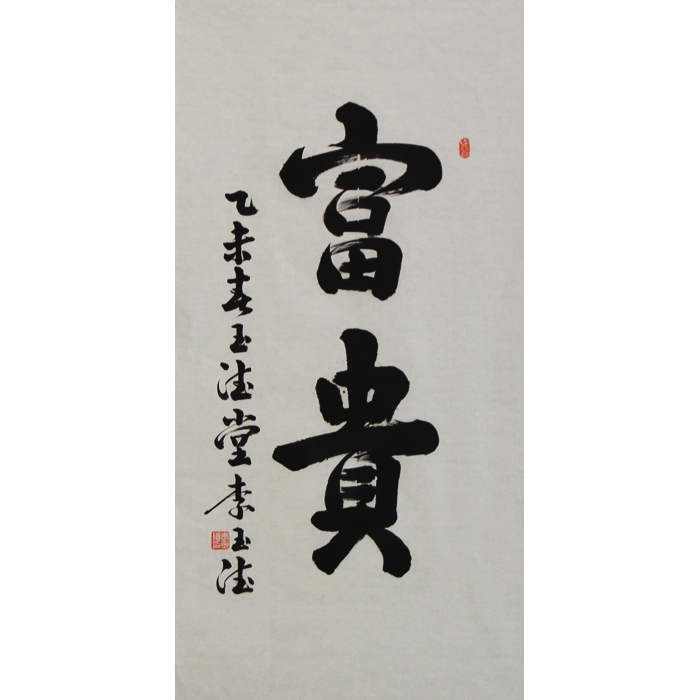 富貴
乙未春玉法堂李玉法